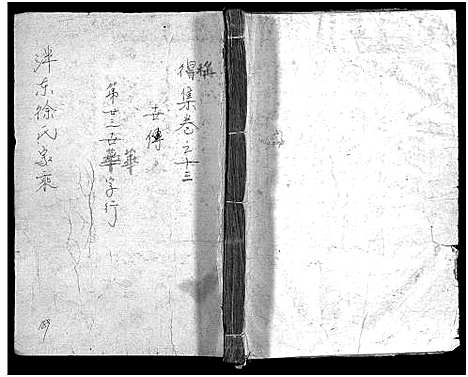 得集卷之十三
世傳
第廿三世華字行
泮东徐氏家乘